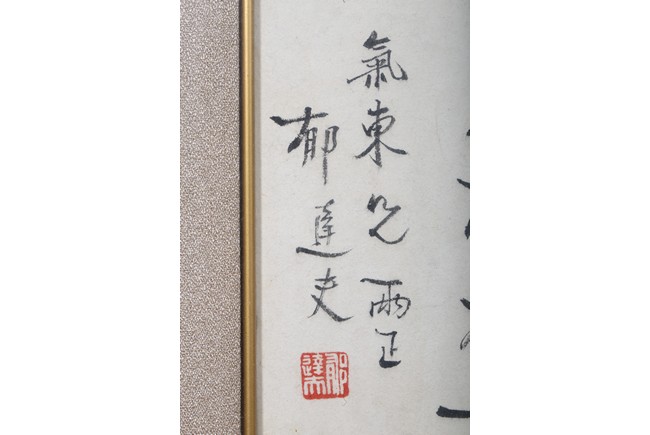 氣東兄兩正
郁達夫
郁達夫